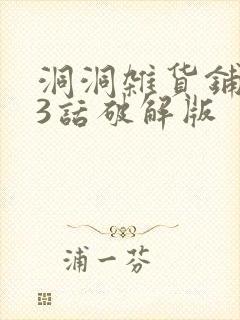 洞洞雜货鋪
3話破解版
浦一芬